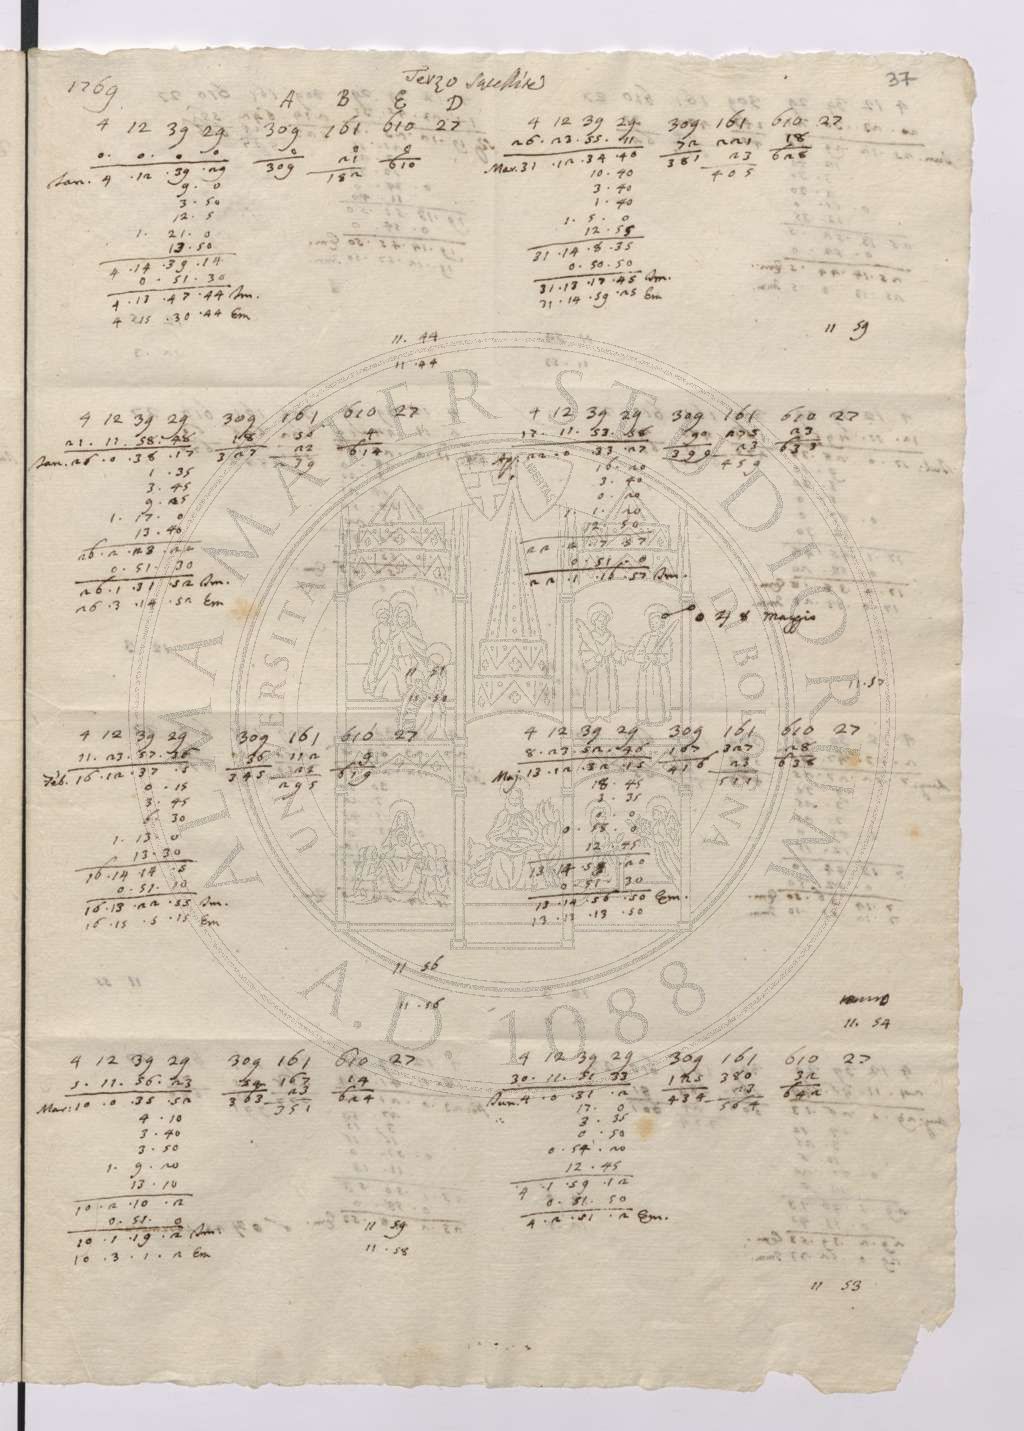 1769
Terzo Satellite
37
A B E D
4 12 39 29 309 161 610 27
0. 0. 0. 0 0 0 0
21
Jan. 4 .12 .39 .29 309 182 610
9. 0
3. 50
12. 5
1. 21. 0
13. 50
4 .14 .39 .14
0. 51. 30
4 .13 .47 .44 Im.
4 15 .30 .44 Em
11. 44
11. 44
4 12 39 29 309 161 610 27
21. 11. 58. 48 18 4
22
Jan. 26. 0. 38. 17 327 39 614
1. 35
3. 45
9. 25
1. 17. 0
13. 40
26. 2. 28. 22
0. 51. 30
26. 1. 31. 52 Im.
26. 3. 14. 52 Em
11 51
11. 50
4 12 39 29 309 161 610 27
11. 23. 57. 36 36 112 9
23
Feb. 16. 12. 37. 5 345 295 619
0. 15
3. 45
6. 30
1. 13. 0
13. 30
16. 14. 14. 5
0. 51. 10
16. 13. 22. 55 Im.
16. 15. 5. 15 Em
11 56
11. 56
4 12 39 29 309 161 610 27
5. 11. 56. 23 54 167 14
23
Mar. 10. 0. 35. 52 363 351 624
4. 10
3. 40
3. 50
1. 9. 20
13. 10
10. 2. 10. 2
0. 51. 0
10. 1. 19. 2 Im
10. 3. 1. 2 Em
11 59
11. 58
4 12 39 29 309 161 610 27
26. 23. 55. 11 72 221 18
23
Mar. 31. 12. 34. 40 381 405 628
10. 40
3. 40
1. 40
1. 5. 0
12. 55
31. 14. 8. 35
0. 50. 50
31. 13. 17. 45 Im.
31. 14. 59. 25 Em
11 59
4 12 39 29 309 161 610 27
17. 11. 53. 58 90 275 23
23
Apr. 22. 0. 33. 27 399 459 633
16. 20
3. 40
0. 20
1. 1. 20
12. 50
22. 2. 7. 57
0. 51. 0
22. 1. 16. 57 Im.
☍ ☉ ♃ 8 Maggio
11. 57
4 12 39 29 309 161 610 27
8. 23. 52. 46 107 327 28
23
Maj. 13. 12. 32. 15 416 511 638
18. 45
3. 35
0. 0
0. 58. 0
12. 45
0. 51. 30
13. 14. 56. 50 Em.
13. 13. 13. 50
11. 54
4 12 39 29 309 161 610 27
30. 11. 51. 33 125 380 32
23
Jun. 4. 0. 31. 2 434 564 642
17. 0
3. 35
0. 50
0. 54. 20
12. 45
4. 1. 59. 12
0. 51. 50
4. 2. 51. 2 Em.
11 53
ALMA MATER STUDIORUM
UNIVERSITÀ DI BOLOGNA
A.D. 1088